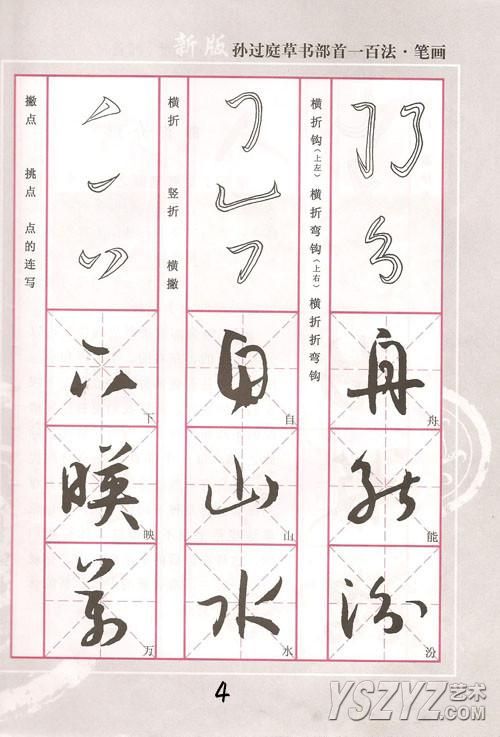 新版 孙过庭草书部首一百法·笔画
撇点 挑点 点的连写
横折 竖折 横撇
横折钩(上左) 横折弯钩(上右) 横折折弯钩
下 自 舟
映 山 能
万 水 汾
4
YSZYZ艺术
.COM